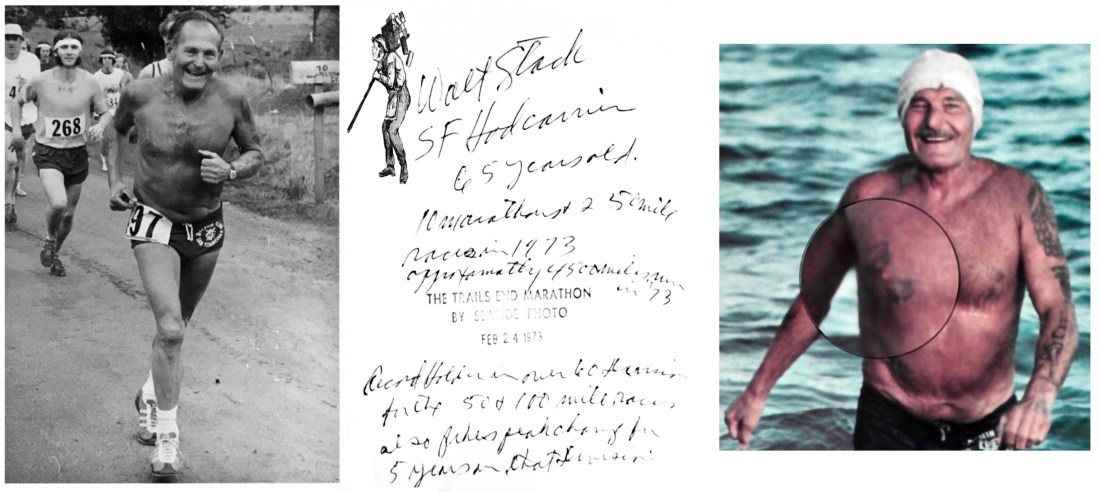 268
97
Walt Stack
SF Hodcarrier
65 years old.
10 marathons & 2 50 mile
races in 1973
approxamatly 4500 miles run
in 73
THE TRAILS END MARATHON
BY SEASIDE PHOTO
FEB 24 1973
Record Holder in over 60 division
for the 50 & 100 mile races
also pikes peak champ for
5 years in that division